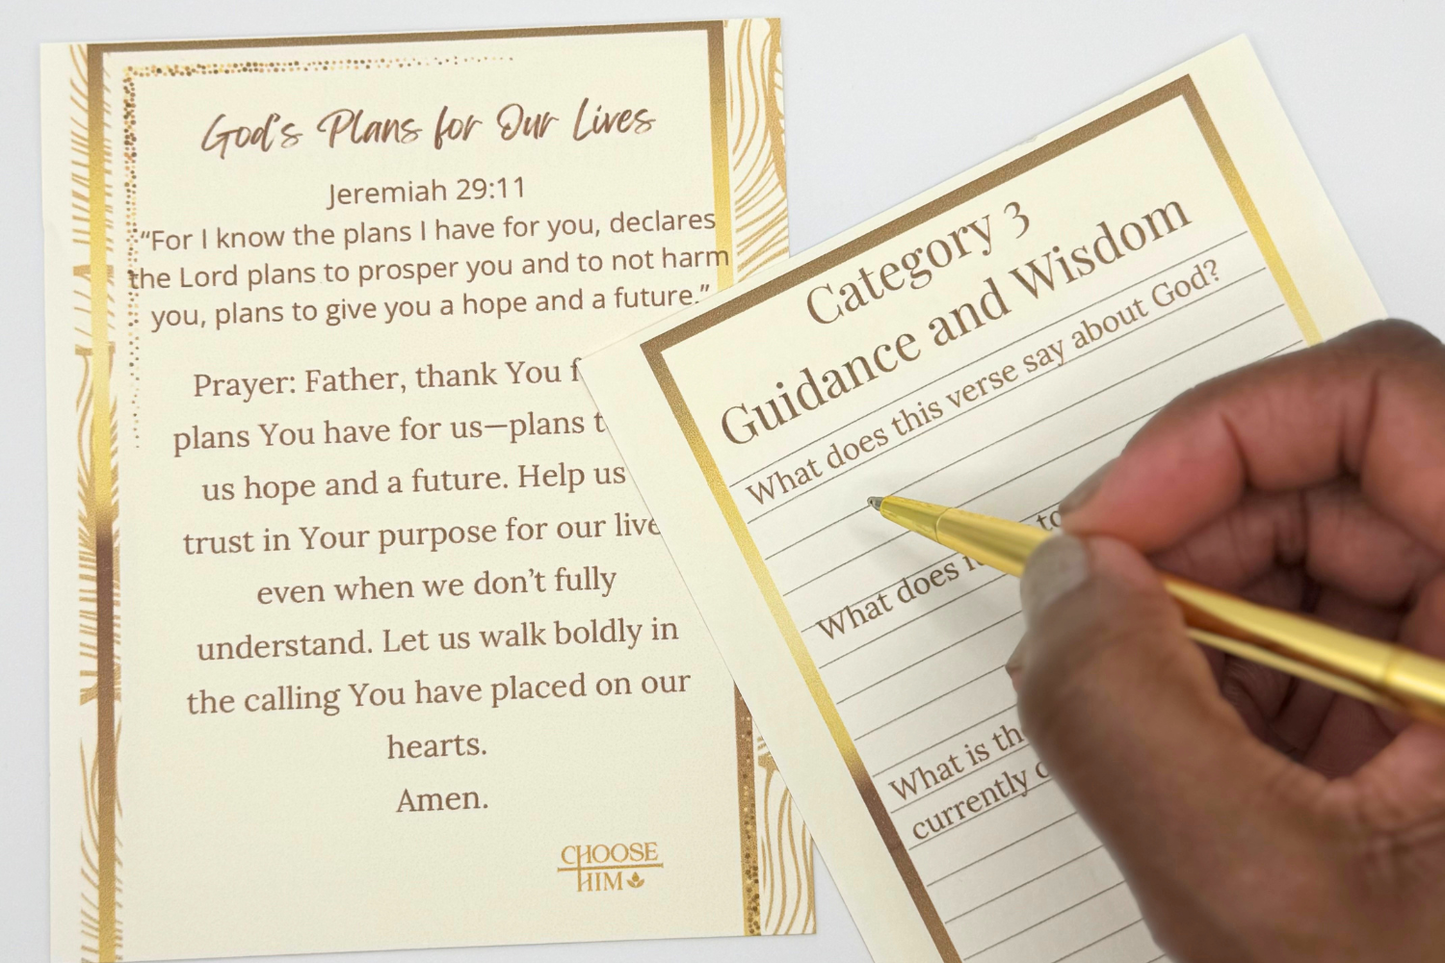 God's Plans for Our Lives
Jeremiah 29:11
“For I know the plans I have for you, declares
the Lord plans to prosper you and to not harm
you, plans to give you a hope and a future.”
Prayer: Father, thank You
plans You have for us—plans
us hope and a future. Help us
trust in Your purpose for our
even when we don’t fully
understand. Let us walk boldly in
the calling You have placed on our
hearts.
Amen.
CHOOSE
HIM
Category 3
Guidance and Wisdom
What does this verse say about God?
What does
What is
currently